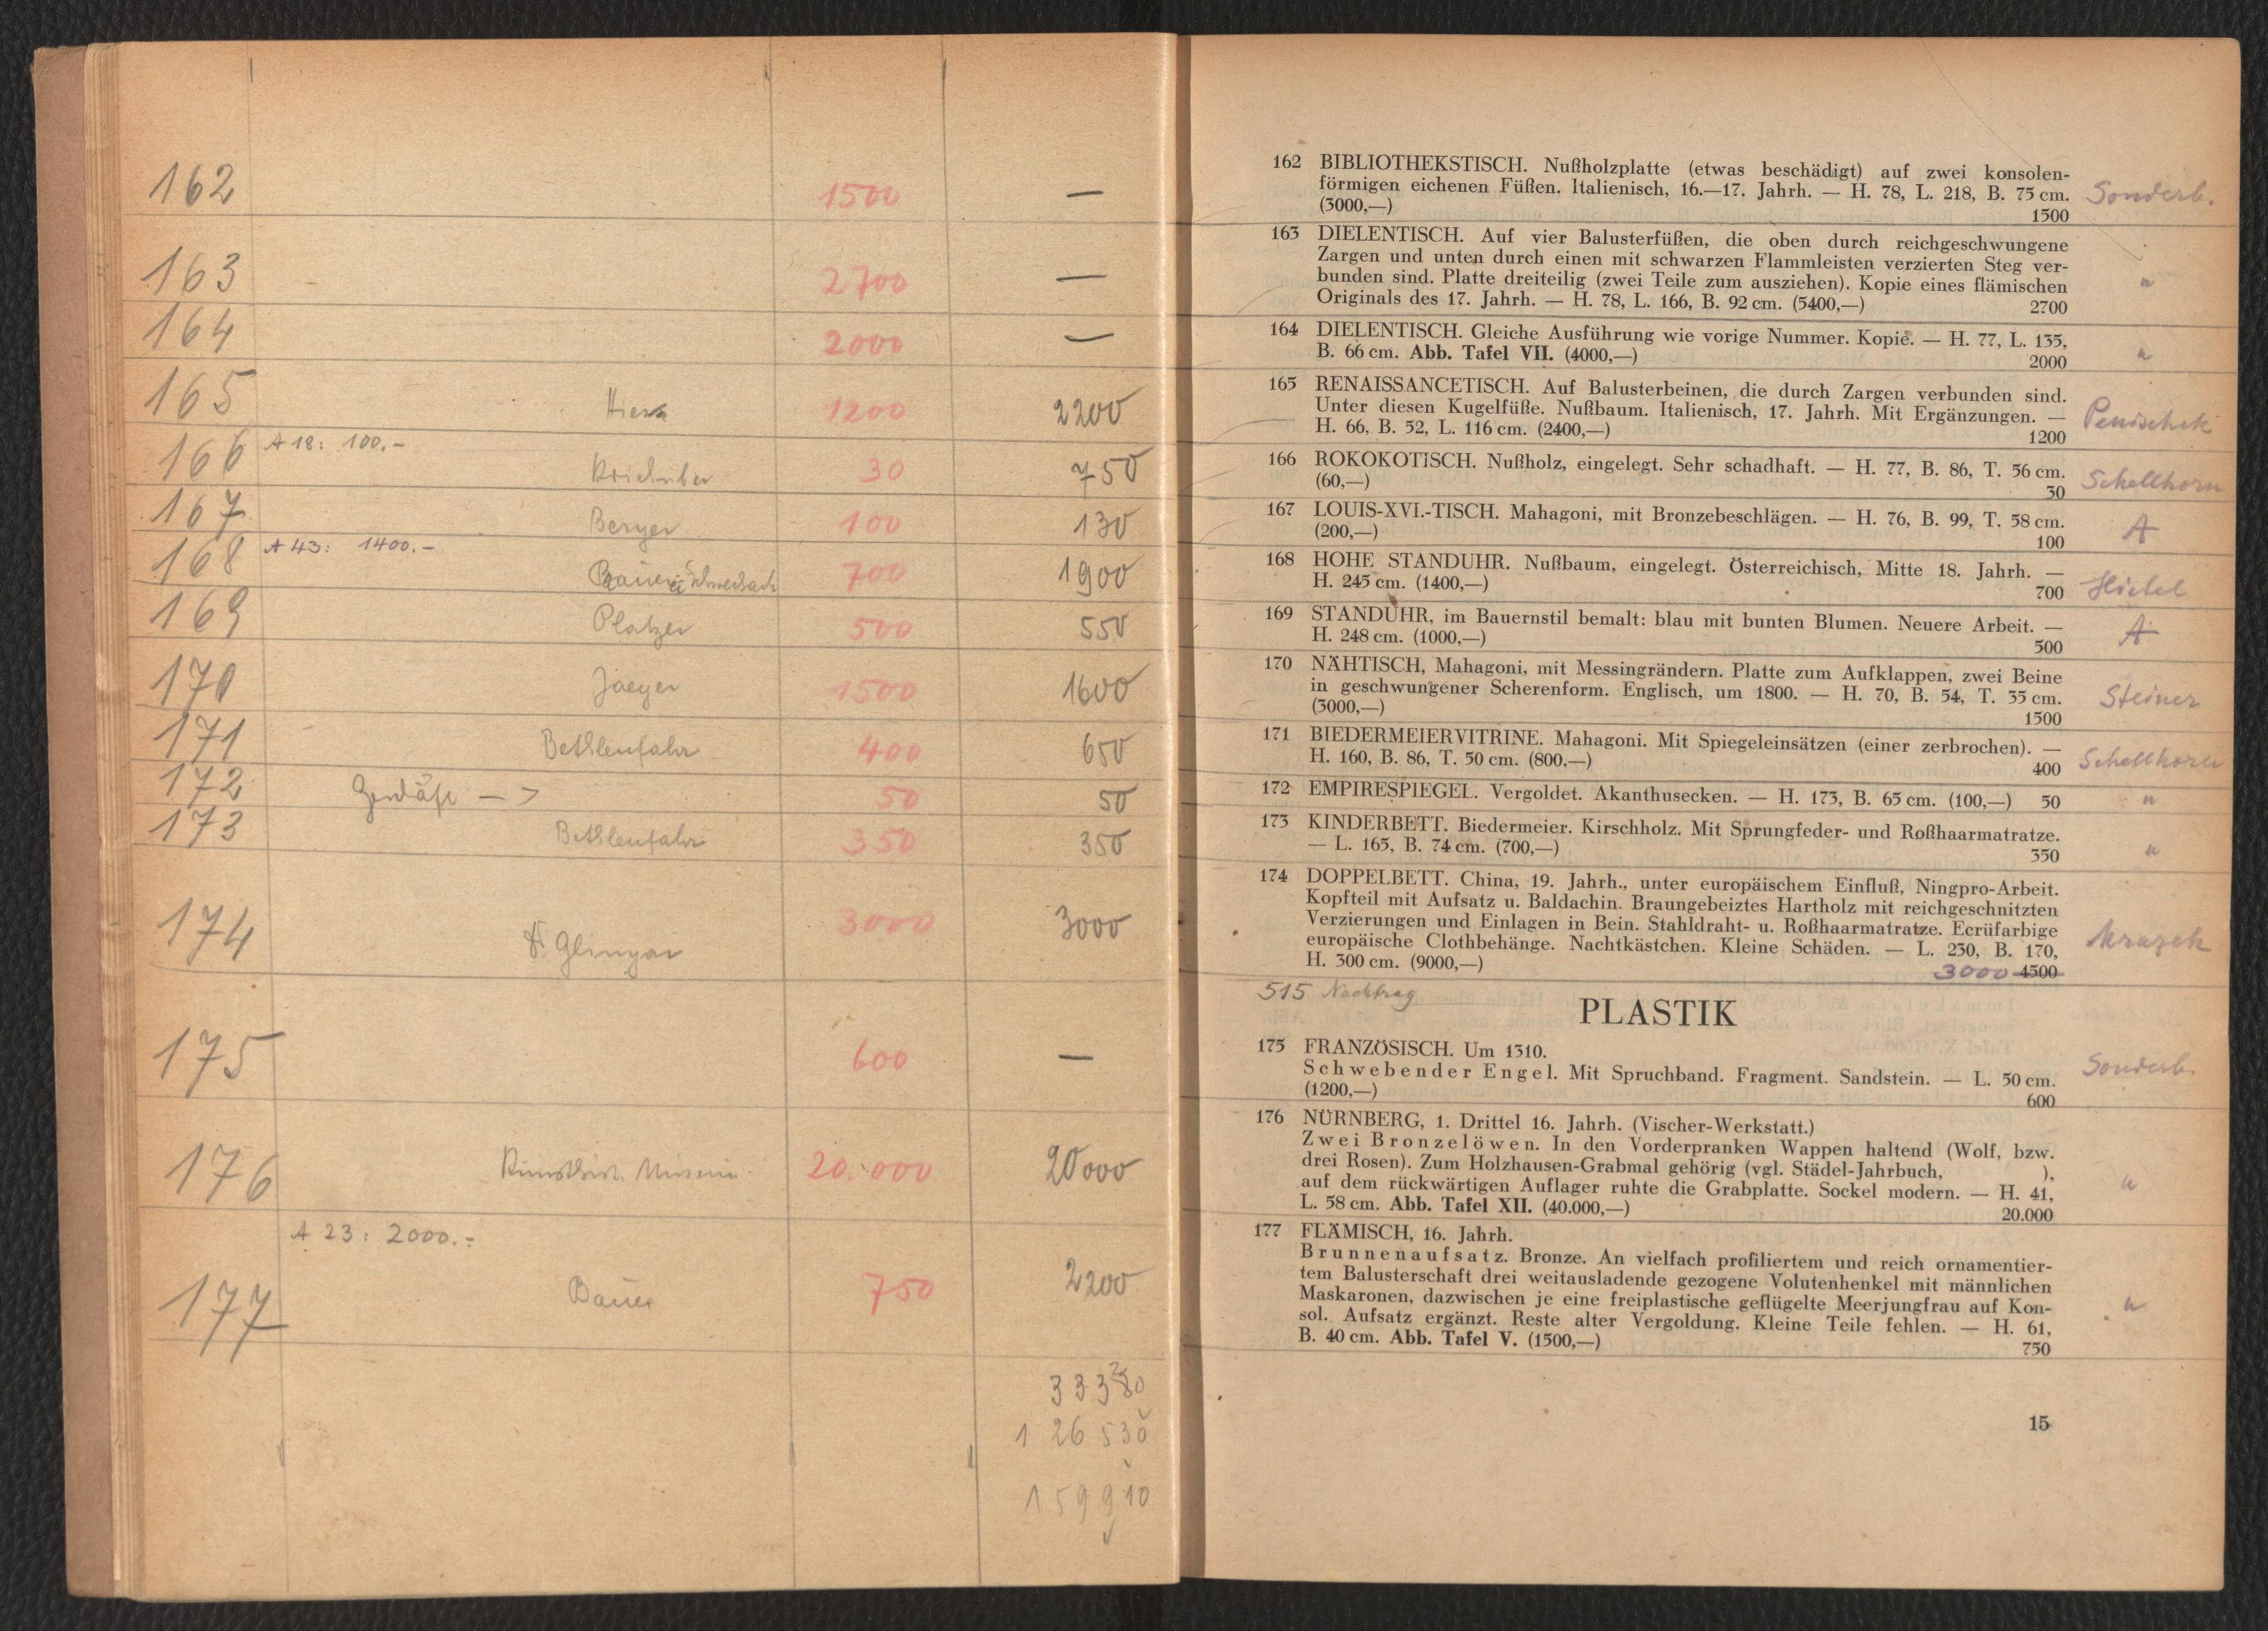 162 1500 —
163 2700 —
164 2000 —
165 1200 2200
166 A 18: 100.- 30 750
167 Berger 100 130
168 A 43: 1400.- 700 1900
169 Platzer 500 550
170 Jaeger 1500 1600
171 Bethlenfalvi 400 650
172 50 50
173 Bethlenfalvi 350 350
174 3000 3000
175 600 —
176 Kunsthist. Museum 20.000 20000
A 23: 2000.-
177 Bauer 750 2200
126 530
159 910
162 BIBLIOTHEKSTISCH. Nußholzplatte (etwas beschädigt) auf zwei konsolen-
förmigen eichenen Füßen. Italienisch, 16.—17. Jahrh. — H. 78, L. 218, B. 75 cm. Sonderb.
(3000,—)
1500
163 DIELENTISCH. Auf vier Balusterfüßen, die oben durch reichgeschwungene
Zargen und unten durch einen mit schwarzen Flammleisten verzierten Steg ver-
bunden sind. Platte dreiteilig (zwei Teile zum ausziehen). Kopie eines flämischen "
Originals des 17. Jahrh. — H. 78, L. 166, B. 92 cm. (5400,—) 2700
164 DIELENTISCH. Gleiche Ausführung wie vorige Nummer. Kopie. — H. 77, L. 135,
B. 66 cm. Abb. Tafel VII. (4000,—) 2000 "
165 RENAISSANCETISCH. Auf Balusterbeinen, die durch Zargen verbunden sind.
Unter diesen Kugelfüße. Nußbaum. Italienisch, 17. Jahrh. Mit Ergänzungen. —
H. 66, B. 52, L. 116 cm. (2400,—) 1200
166 ROKOKOTISCH. Nußholz, eingelegt. Sehr schadhaft. — H. 77, B. 86, T. 56 cm.
(60,—) 30 Schellhorn
167 LOUIS-XVI.-TISCH. Mahagoni, mit Bronzebeschlägen. — H. 76, B. 99, T. 58 cm.
(200,—) 100 A
168 HOHE STANDUHR. Nußbaum, eingelegt. Österreichisch, Mitte 18. Jahrh. —
H. 245 cm. (1400,—) 700
169 STANDUHR, im Bauernstil bemalt: blau mit bunten Blumen. Neuere Arbeit. —
H. 248 cm. (1000,—) 500 A
170 NÄHTISCH, Mahagoni, mit Messingrändern. Platte zum Aufklappen, zwei Beine
in geschwungener Scherenform. Englisch, um 1800. — H. 70, B. 54, T. 35 cm. Steiner
(3000,—)
1500
171 BIEDERMEIERVITRINE. Mahagoni. Mit Spiegeleinsätzen (einer zerbrochen). —
H. 160, B. 86, T. 50 cm. (800,—) 400 Schellhorn
172 EMPIRESPIEGEL. Vergoldet. Akanthusecken. — H. 173, B. 65 cm. (100,—) 50 "
173 KINDERBETT. Biedermeier. Kirschholz. Mit Sprungfeder- und Roßhaarmatratze.
— L. 165, B. 74 cm. (700,—) 350 "
174 DOPPELBETT. China, 19. Jahrh., unter europäischem Einfluß, Ningpro-Arbeit.
Kopfteil mit Aufsatz u. Baldachin. Braungebeiztes Hartholz mit reichgeschnitzten
Verzierungen und Einlagen in Bein. Stahldraht- u. Roßhaarmatratze. Ecrüfarbige
europäische Clothbehänge. Nachtkästchen. Kleine Schäden. — L. 230, B. 170, Mrazek
H. 300 cm. (9000,—) 3000 4500
515 Nachtrag
PLASTIK
175 FRANZÖSISCH. Um 1310.
Schwebender Engel. Mit Spruchband. Fragment. Sandstein. — L. 50 cm. Sonderb.
(1200,—) 600
176 NÜRNBERG, 1. Drittel 16. Jahrh. (Vischer-Werkstatt.)
Zwei Bronzelöwen. In den Vorderpranken Wappen haltend (Wolf, bzw.
drei Rosen). Zum Holzhausen-Grabmal gehörig (vgl. Städel-Jahrbuch, ),
auf dem rückwärtigen Auflager ruhte die Grabplatte. Sockel modern. — H. 41, "
L. 58 cm. Abb. Tafel XII. (40.000,—) 20.000
177 FLÄMISCH, 16. Jahrh.
Brunnenaufsatz. Bronze. An vielfach profiliertem und reich ornamentier-
tem Balusterschaft drei weitausladende gezogene Volutenhenkel mit männlichen
Maskaronen, dazwischen je eine freiplastische geflügelte Meerjungfrau auf Kon- "
sol. Aufsatz ergänzt. Reste alter Vergoldung. Kleine Teile fehlen. — H. 61,
B. 40 cm. Abb. Tafel V. (1500,—) 750
15